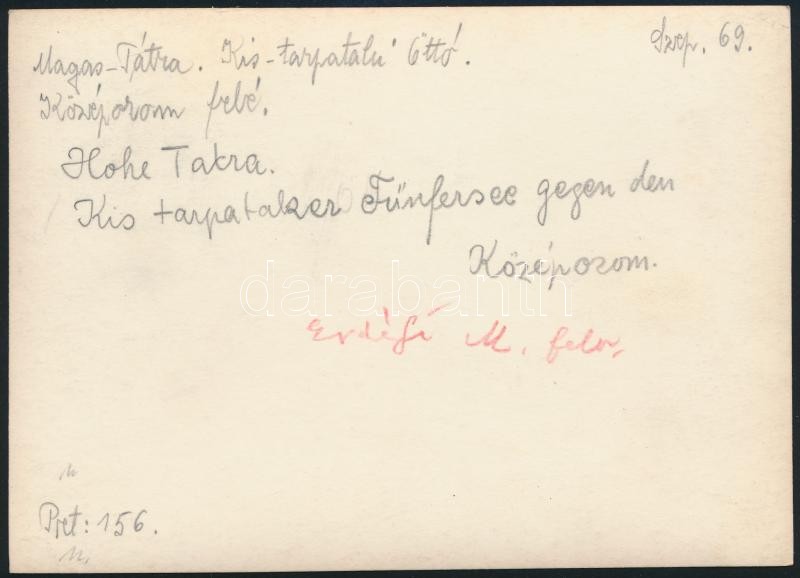 Szep. 69.
Magas-Tátra. Kis-tarpataki Öttó.
Középorom felé.
Hohe Tatra.
Kis tarpataker Fünfersee gegen den
Középorom.
darabanth
Erdéfi M. felv.
Pret: 156.